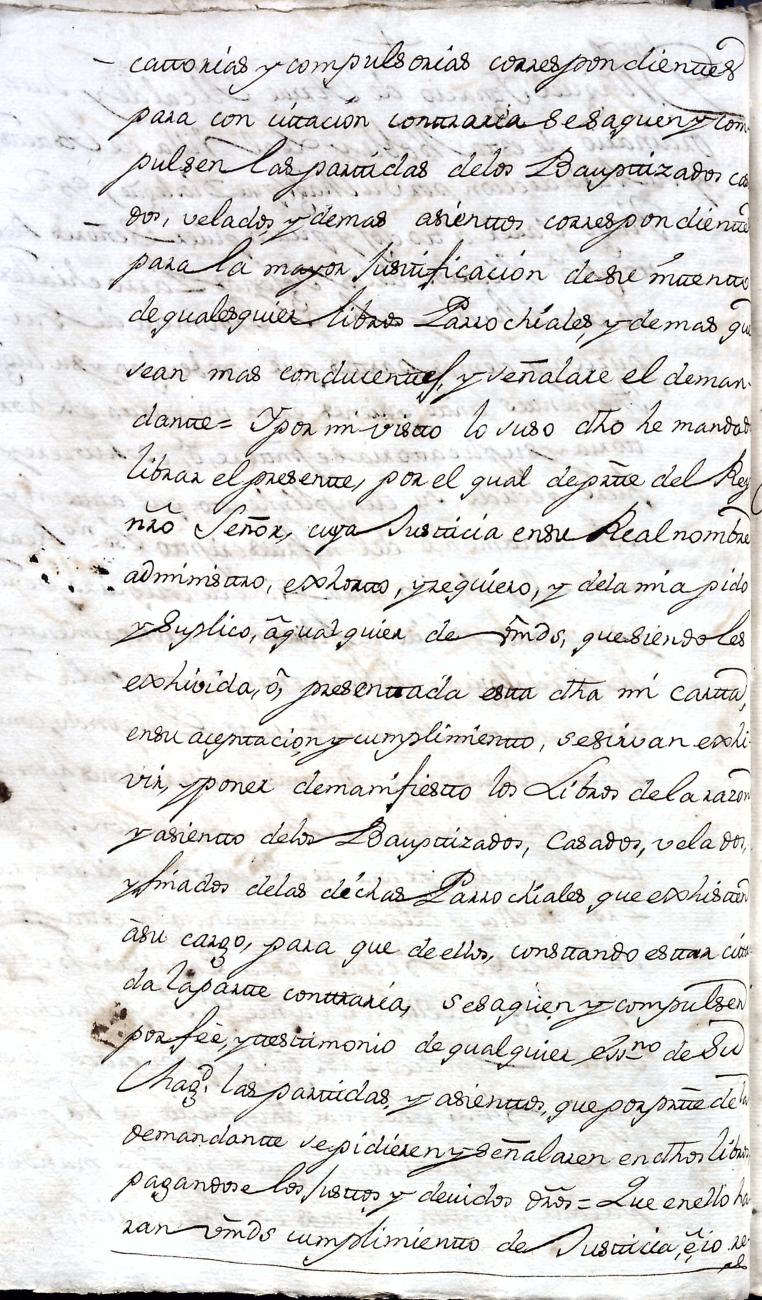 cattorias y compulsorias correspondienttes
para con cittación conttraria se saquen y com-
pulsen las parttidas delos Bauptizados ca
dos, velados, y demas asienttos correspondientte
para la mayor Justtificación de su inttentto
de qualesquier libros Parrochiales, y demas que
sean mas conducenttes, y señalare el deman-
dantte = Y por mi vistto lo suso dho he mandado
librar el presentte, por el qual de partte del Rey
nrô Señor, cuya Justicia en su Real nombre
administro, exhortto, y requiero, y dela mia pido
y Suplico, â qualquier de Vmds, que siendoles
exhivida, ô, presenttada estta dha mi cartta,
en su aceptacion, y cumplimientto, se sirvan exhi-
vir, y poner de manifiestto los Libros dela razon
y asientto delos Bauptizados, Casados, velados,
y finados delas dichas Parrochiales, que exhistten
â su cargo, para que de ellos, consttando esttar citta
da la partte conttraria, se saquen y compulsen
por feè, y testimonio de qualquier essno de Su
Magd. las parttidas, y asienttos, que por prtte de la
demandantte se pidieren y señalaren en dhos libros
pagandose los Justtos y devidos drôs = Que en ello ha
ran Vmds cumplimientto de Justticia, ê, io re